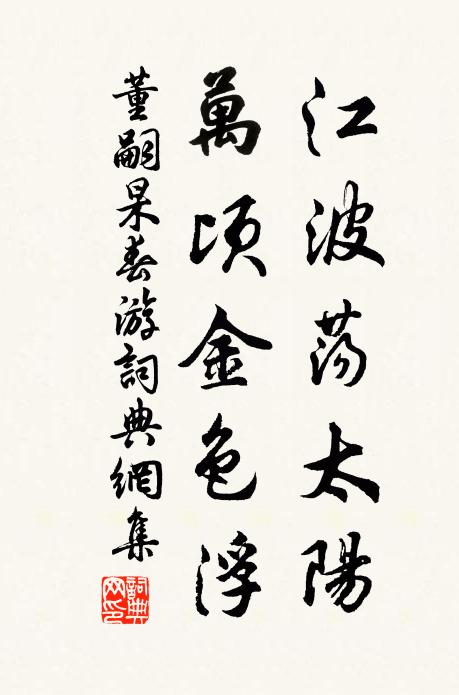 江波荡太陽
萬頃金色浮
董嗣杲春游詞典網集
詞典網印